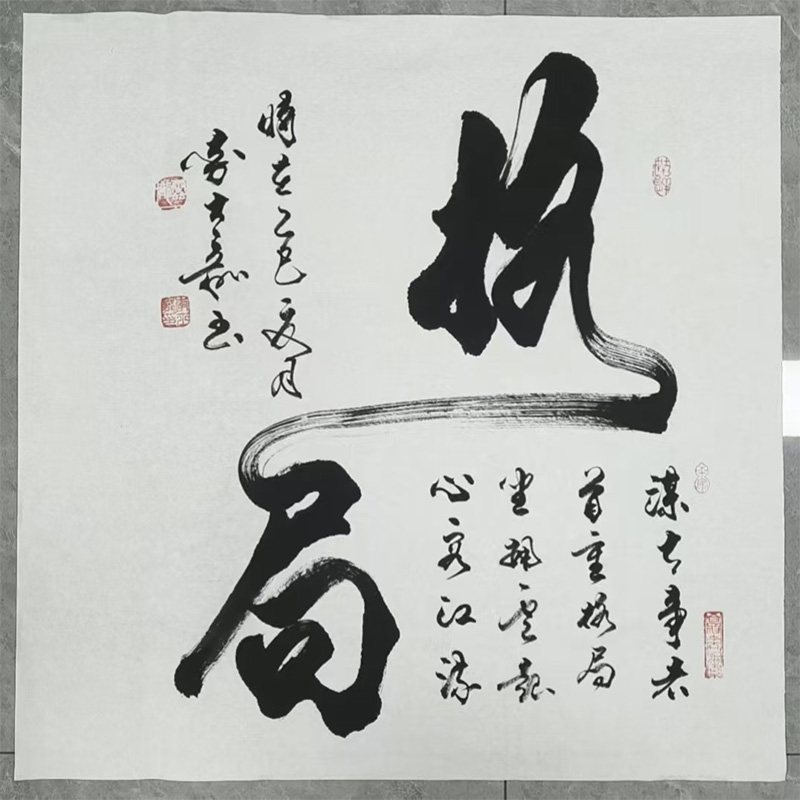 格局
谋大事者
首重格局
坐拥云起
心容江
时在乙巳夏月